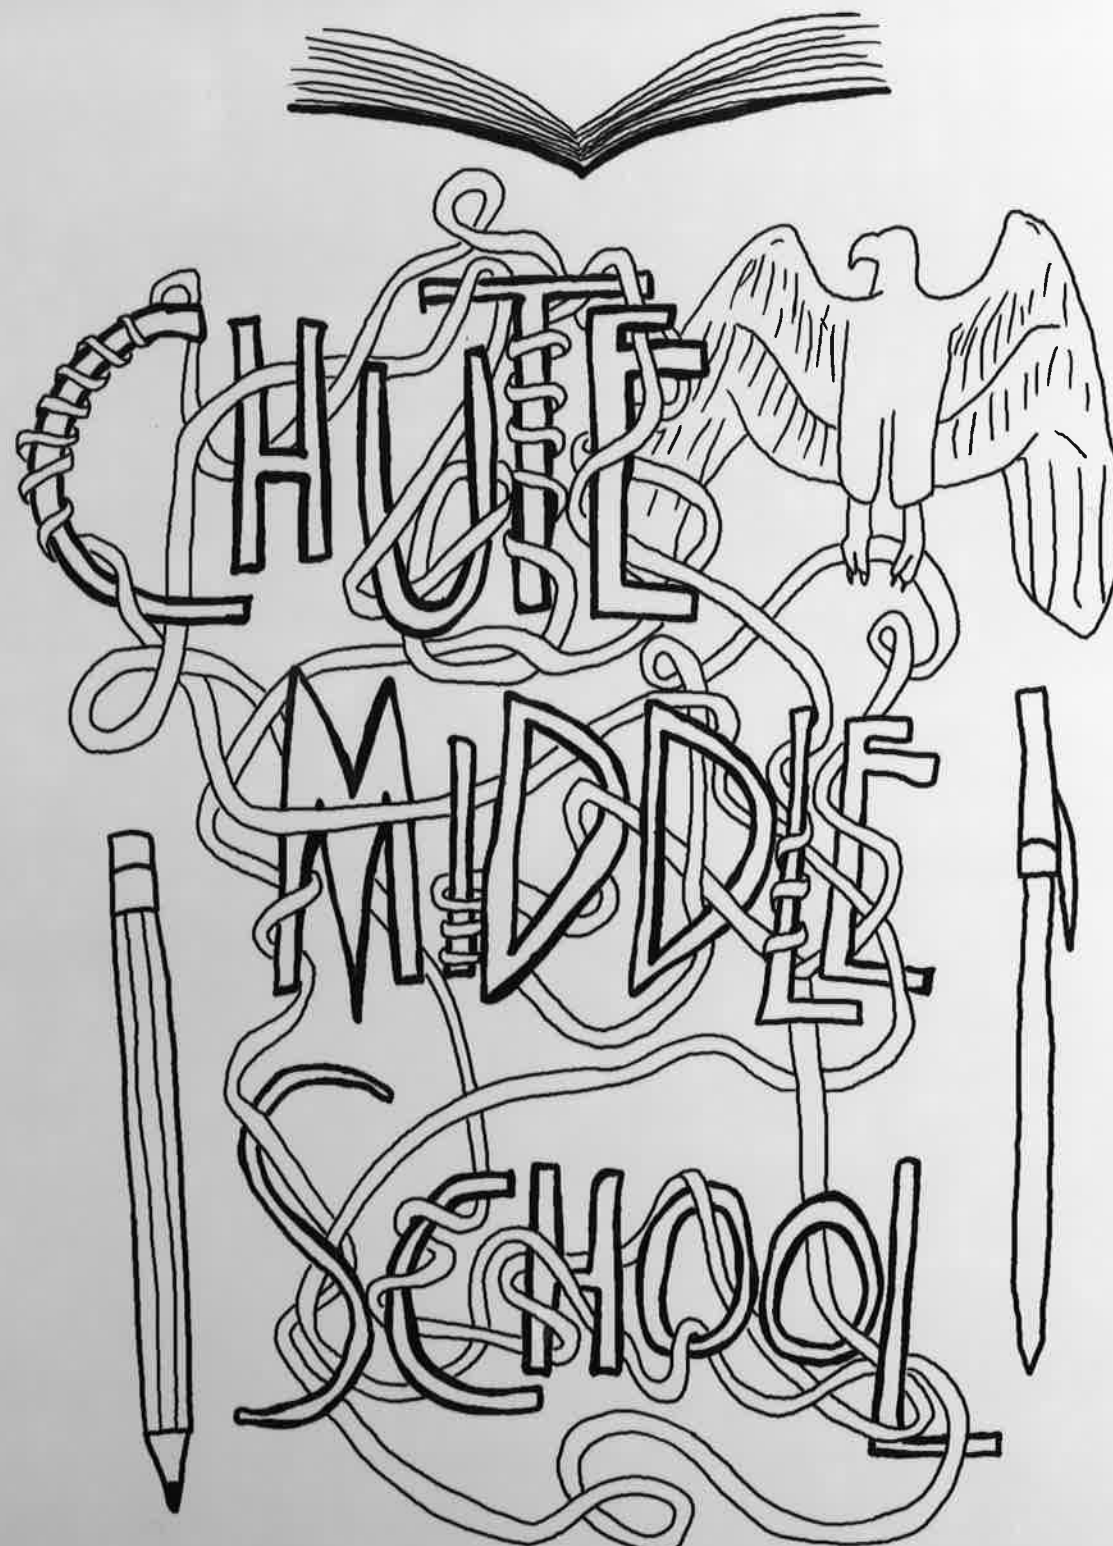 CHUTE
MIDDLE
SCHOOL